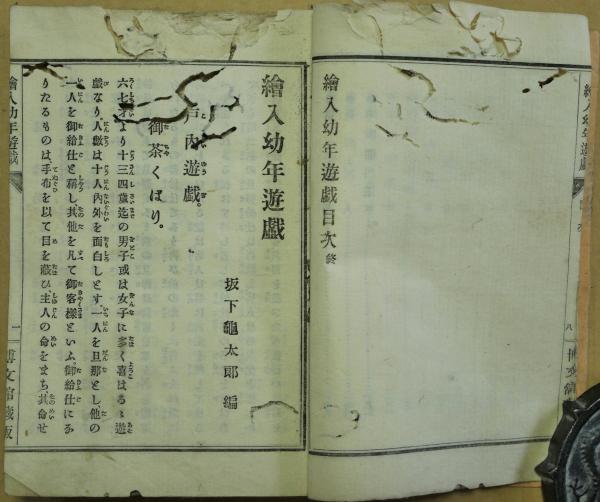 繪入幼年遊戯
八
博文館
繪入幼年遊戯目次終
繪入幼年遊戯
坂下龜太郎編
戸内遊戯。
御茶くばり。
六七才より十三四歳迄の男子或は女子に多く喜ばるゝ遊
戯なり、人數は十人内外を面白しとす、一人を旦那とし他の
一人を御給仕と稱し其他を凡て御客樣といふ、御給仕にな
りたるものは、手布を以て目を蔽ひ、主人の命をまち、其命せ
繪入幼年遊戯
一
博文館藏版